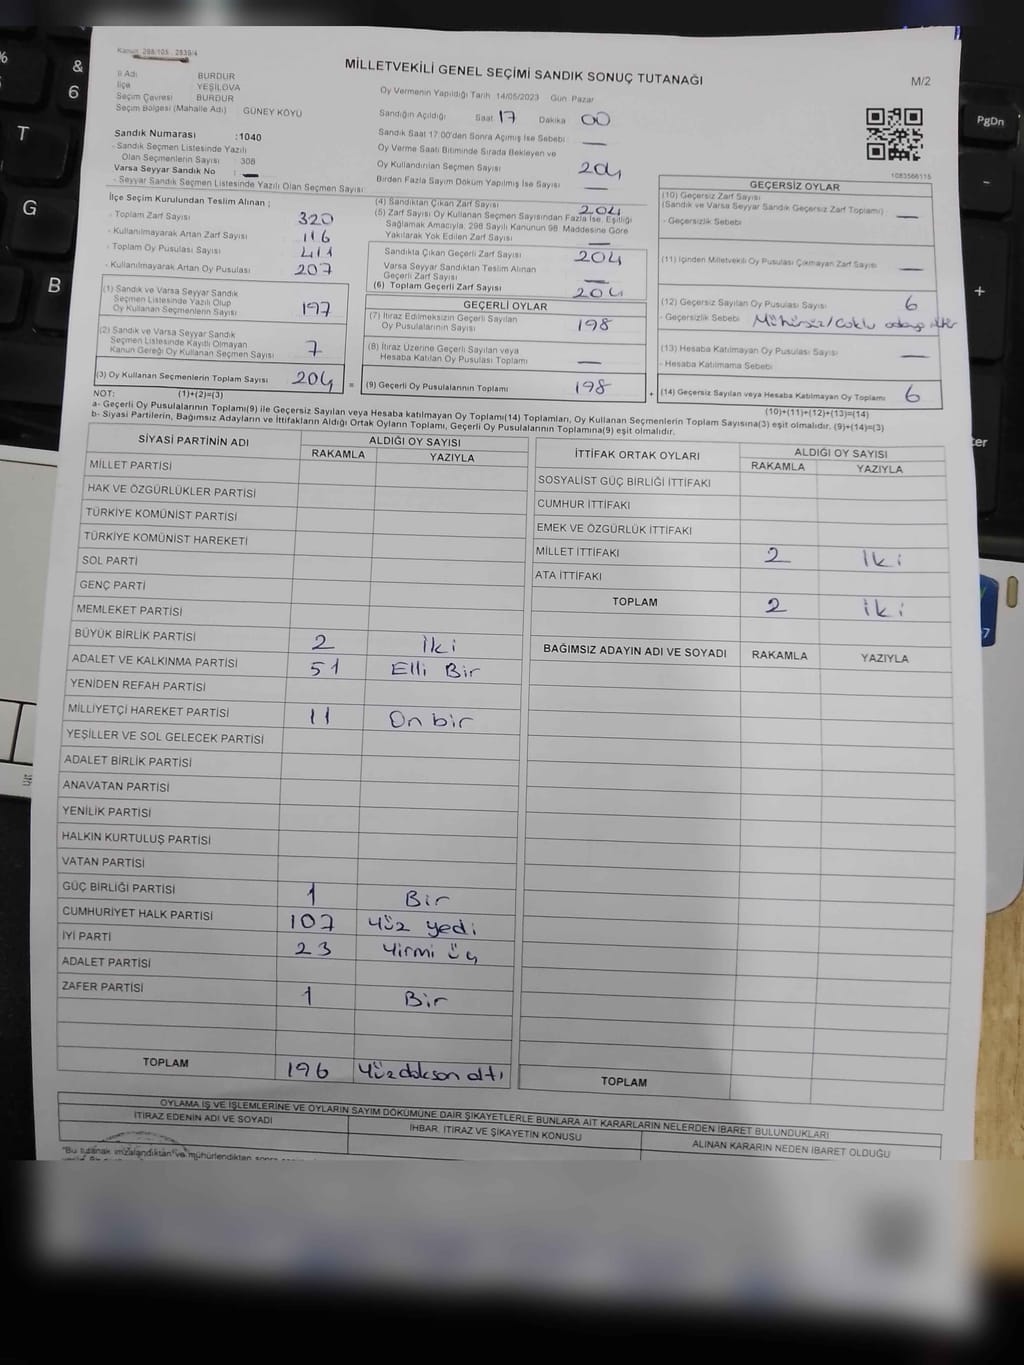 Kanun 298/105 , 2839/4
MİLLETVEKİLİ GENEL SEÇİMİ SANDIK SONUÇ TUTANAĞI
M/2
İl Adı BURDUR
İlçe YEŞİLOVA
Seçim Çevresi BURDUR
Seçim Bölgesi (Mahalle Adı) GÜNEY KÖYÜ
Sandık Numarası :1040
- Sandık Seçmen Listesinde Yazılı
Olan Seçmenlerin Sayısı : 308
Varsa Seyyar Sandık No : —
- Seyyar Sandık Seçmen Listesinde Yazılı Olan Seçmen Sayısı:
Oy Vermenin Yapıldığı Tarih 14/05/2023 Gün Pazar
Sandığın Açıldığı Saat 17 Dakika 00
Sandık Saat 17.00'den Sonra Açılmış İse Sebebi: —
Oy Verme Saati Bitiminde Sırada Bekleyen ve
Oy Kullandırılan Seçmen Sayısı 204
Birden Fazla Sayım Döküm Yapılmış İse Sayısı —
1083566115
İlçe Seçim Kurulundan Teslim Alınan ;
- Toplam Zarf Sayısı 320
- Kullanılmayarak Artan Zarf Sayısı 116
- Toplam Oy Pusulası Sayısı 411
- Kullanılmayarak Artan Oy Pusulası 207
(1) Sandık ve Varsa Seyyar Sandık
Seçmen Listesinde Yazılı Olup
Oy Kullanan Seçmenlerin Sayısı 197
(2) Sandık ve Varsa Seyyar Sandık
Seçmen Listesinde Kayıtlı Olmayan
Kanun Gereği Oy Kullanan Seçmen Sayısı 7
(3) Oy Kullanan Seçmenlerin Toplam Sayısı 204 =
(1)+(2)=(3)
(4) Sandıktan Çıkan Zarf Sayısı 204
(5) Zarf Sayısı Oy Kullanan Seçmen Sayısından Fazla İse, Eşitliği
Sağlamak Amacıyla, 298 Sayılı Kanunun 98. Maddesine Göre
Yakılarak Yok Edilen Zarf Sayısı —
Sandıkta Çıkan Geçerli Zarf Sayısı 204
Varsa Seyyar Sandıktan Teslim Alınan
Geçerli Zarf Sayısı —
(6) Toplam Geçerli Zarf Sayısı 204
GEÇERLİ OYLAR
(7) İtiraz Edilmeksizin Geçerli Sayılan
Oy Pusulalarının Sayısı 198
(8) İtiraz Üzerine Geçerli Sayılan veya
Hesaba Katılan Oy Pusulası Toplamı —
(9) Geçerli Oy Pusulalarının Toplamı 198 +
GEÇERSİZ OYLAR
(10) Geçersiz Zarf Sayısı
(Sandık ve Varsa Seyyar Sandık Geçersiz Zarf Toplamı) —
- Geçersizlik Sebebi
(11) İçinden Milletvekili Oy Pusulası Çıkmayan Zarf Sayısı —
(12) Geçersiz Sayılan Oy Pusulası Sayısı 6
- Geçersizlik Sebebi Mühürsüz/Çoklu
(13) Hesaba Katılmayan Oy Pusulası Sayısı —
- Hesaba Katılmama Sebebi
(14) Geçersiz Sayılan veya Hesaba Katılmayan Oy Toplamı 6
(10)+(11)+(12)+(13)=(14)
NOT:
a- Geçerli Oy Pusulalarının Toplamı(9) ile Geçersiz Sayılan veya Hesaba katılmayan Oy Toplamı(14) Toplamları, Oy Kullanan Seçmenlerin Toplam Sayısına(3) eşit olmalıdır. (9)+(14)=(3)
b- Siyasi Partilerin, Bağımsız Adayların ve İttifakların Aldığı Ortak Oyların Toplamı, Geçerli Oy Pusulalarının Toplamına(9) eşit olmalıdır.
SİYASİ PARTİNİN ADI ALDIĞI OY SAYISI
RAKAMLA YAZIYLA
MİLLET PARTİSİ
HAK VE ÖZGÜRLÜKLER PARTİSİ
TÜRKİYE KOMÜNİST PARTİSİ
TÜRKİYE KOMÜNİST HAREKETİ
SOL PARTİ
GENÇ PARTİ
MEMLEKET PARTİSİ
BÜYÜK BİRLİK PARTİSİ 2 İki
ADALET VE KALKINMA PARTİSİ 51 Elli Bir
YENİDEN REFAH PARTİSİ
MİLLİYETÇİ HAREKET PARTİSİ 11 On bir
YEŞİLLER VE SOL GELECEK PARTİSİ
ADALET BİRLİK PARTİSİ
ANAVATAN PARTİSİ
YENİLİK PARTİSİ
HALKIN KURTULUŞ PARTİSİ
VATAN PARTİSİ
GÜÇ BİRLİĞİ PARTİSİ 1 Bir
CUMHURİYET HALK PARTİSİ 107 Yüz yedi
İYİ PARTİ 23 Yirmi üç
ADALET PARTİSİ
ZAFER PARTİSİ 1 Bir
TOPLAM 196 Yüzdoksan altı
İTTİFAK ORTAK OYLARI ALDIĞI OY SAYISI
RAKAMLA YAZIYLA
SOSYALİST GÜÇ BİRLİĞİ İTTİFAKI
CUMHUR İTTİFAKI
EMEK VE ÖZGÜRLÜK İTTİFAKI
MİLLET İTTİFAKI 2 İki
ATA İTTİFAKI
TOPLAM 2 İki
BAĞIMSIZ ADAYIN ADI VE SOYADI RAKAMLA YAZIYLA
TOPLAM
OYLAMA İŞ VE İŞLEMLERİNE VE OYLARIN SAYIM DÖKÜMÜNE DAİR ŞİKAYETLERLE BUNLARA AİT KARARLARIN NELERDEN İBARET BULUNDUKLARI
İTİRAZ EDENİN ADI VE SOYADI İHBAR, İTİRAZ VE ŞİKAYETİN KONUSU ALINAN KARARIN NEDEN İBARET OLDUĞU
"Bu tutanak imzalandıktan ve mühürlendikten sonra
% & 6 T G B PgDn - +